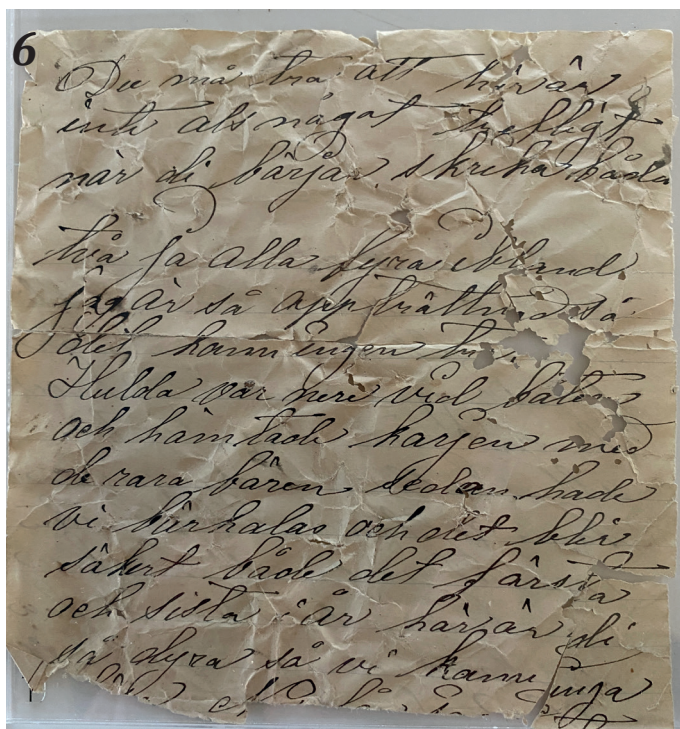 6
Du må tro att här är
inte als något trefligt
när di börja skrika båda
två ja alla fyra ibland.
jag är så uppbrättnad så
det kann ingen tro.
Hulda var nere vid båten
och hämtade korjen med
de rara bären sedan hade
vi bärkalas och det blir
säkert både det första
och sista i år här är di
så dyra så vi kann inga